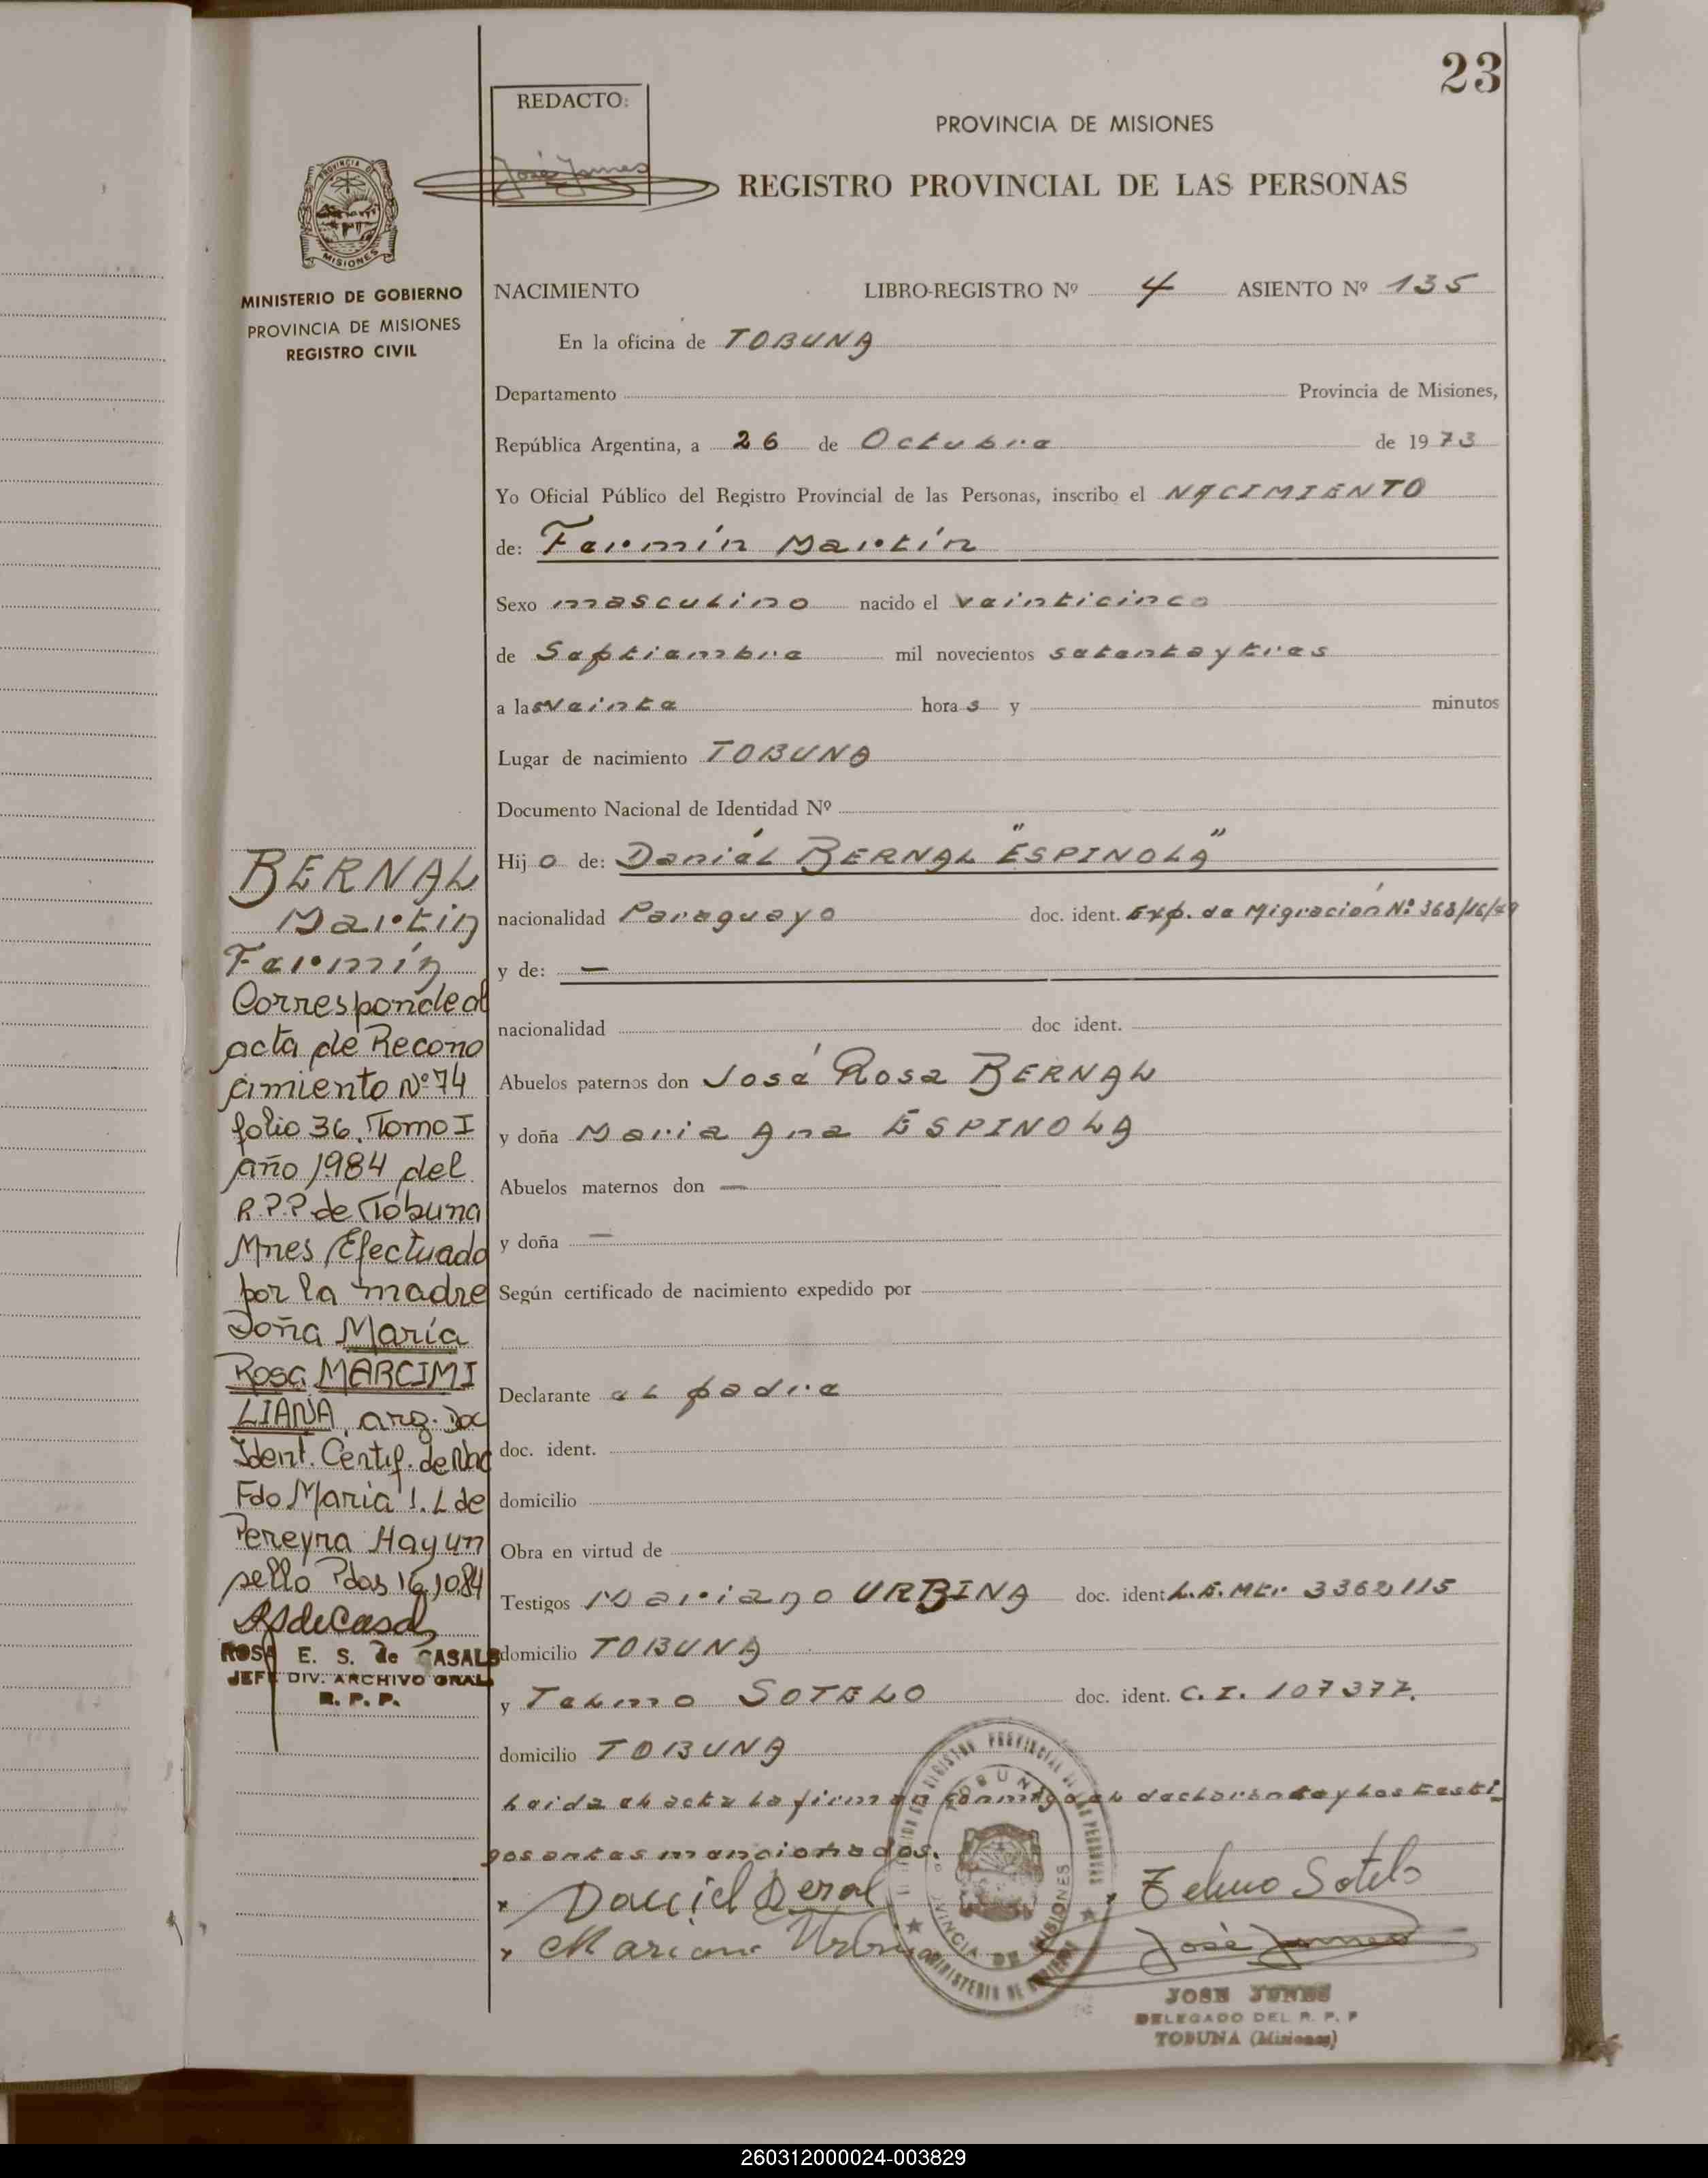 23
REDACTO:
José Junes
PROVINCIA DE MISIONES
REGISTRO PROVINCIAL DE LAS PERSONAS
PROVINCIA DE
MISIONES
MINISTERIO DE GOBIERNO
PROVINCIA DE MISIONES
REGISTRO CIVIL
NACIMIENTO LIBRO-REGISTRO Nº 4 ASIENTO Nº 135
En la oficina de TOBUNA
Departamento Provincia de Misiones,
República Argentina, a 26 de Octubre de 1973
Yo Oficial Público del Registro Provincial de las Personas, inscribo el NACIMIENTO
de: Fermín Martín
Sexo masculino nacido el veinticinco
de Septiembre mil novecientos setenta y tres
a las veinte horas y minutos
Lugar de nacimiento TOBUNA
Documento Nacional de Identidad Nº
Hijo de: Daniél BERNAL "ESPINOLA"
nacionalidad Paraguayo doc. ident. Exp. de Migración Nº 368/16/
y de: —
nacionalidad doc ident.
Abuelos paternos don José Rosa BERNAL
y doña Maria Ana ESPINOLA
Abuelos maternos don —
y doña —
Según certificado de nacimiento expedido por
Declarante el padre
doc. ident.
domicilio
Obra en virtud de
Testigos Mariano URBINA doc. ident. L.E. Mtr.
domicilio TOBUNA
y Telmo SOTELO doc. ident. C.I. 107377.
domicilio TOBUNA
Leida el acta la firman conmigo el declarante y los testi-
gos antes mencionados.
BERNAL
Martin
Fermín
Corresponde al
acta de Recono
cimiento Nº 74
folio 36, Tomo I
año 1984 del
R.P.P. de Tobuna
Mnes, Efectuado
por la madre
Doña María
Rosa MARCIMI
LIANA, arg. Doc
Ident. Certif. de Nac
Fdo Maria I. L de
Pereyra Hay un
sello Pdas 16,10,84
RSdeCasals
ROSA E. S. de CASALS
JEFE DIV. ARCHIVO GRAL
R. P. P.
Daniel Bernal
Telmo Sotelo
Mariano Urbina
José Junes
JOSE JUNES
DELEGADO DEL R. P. P
TOBUNA (Misiones)
260312000024-003829